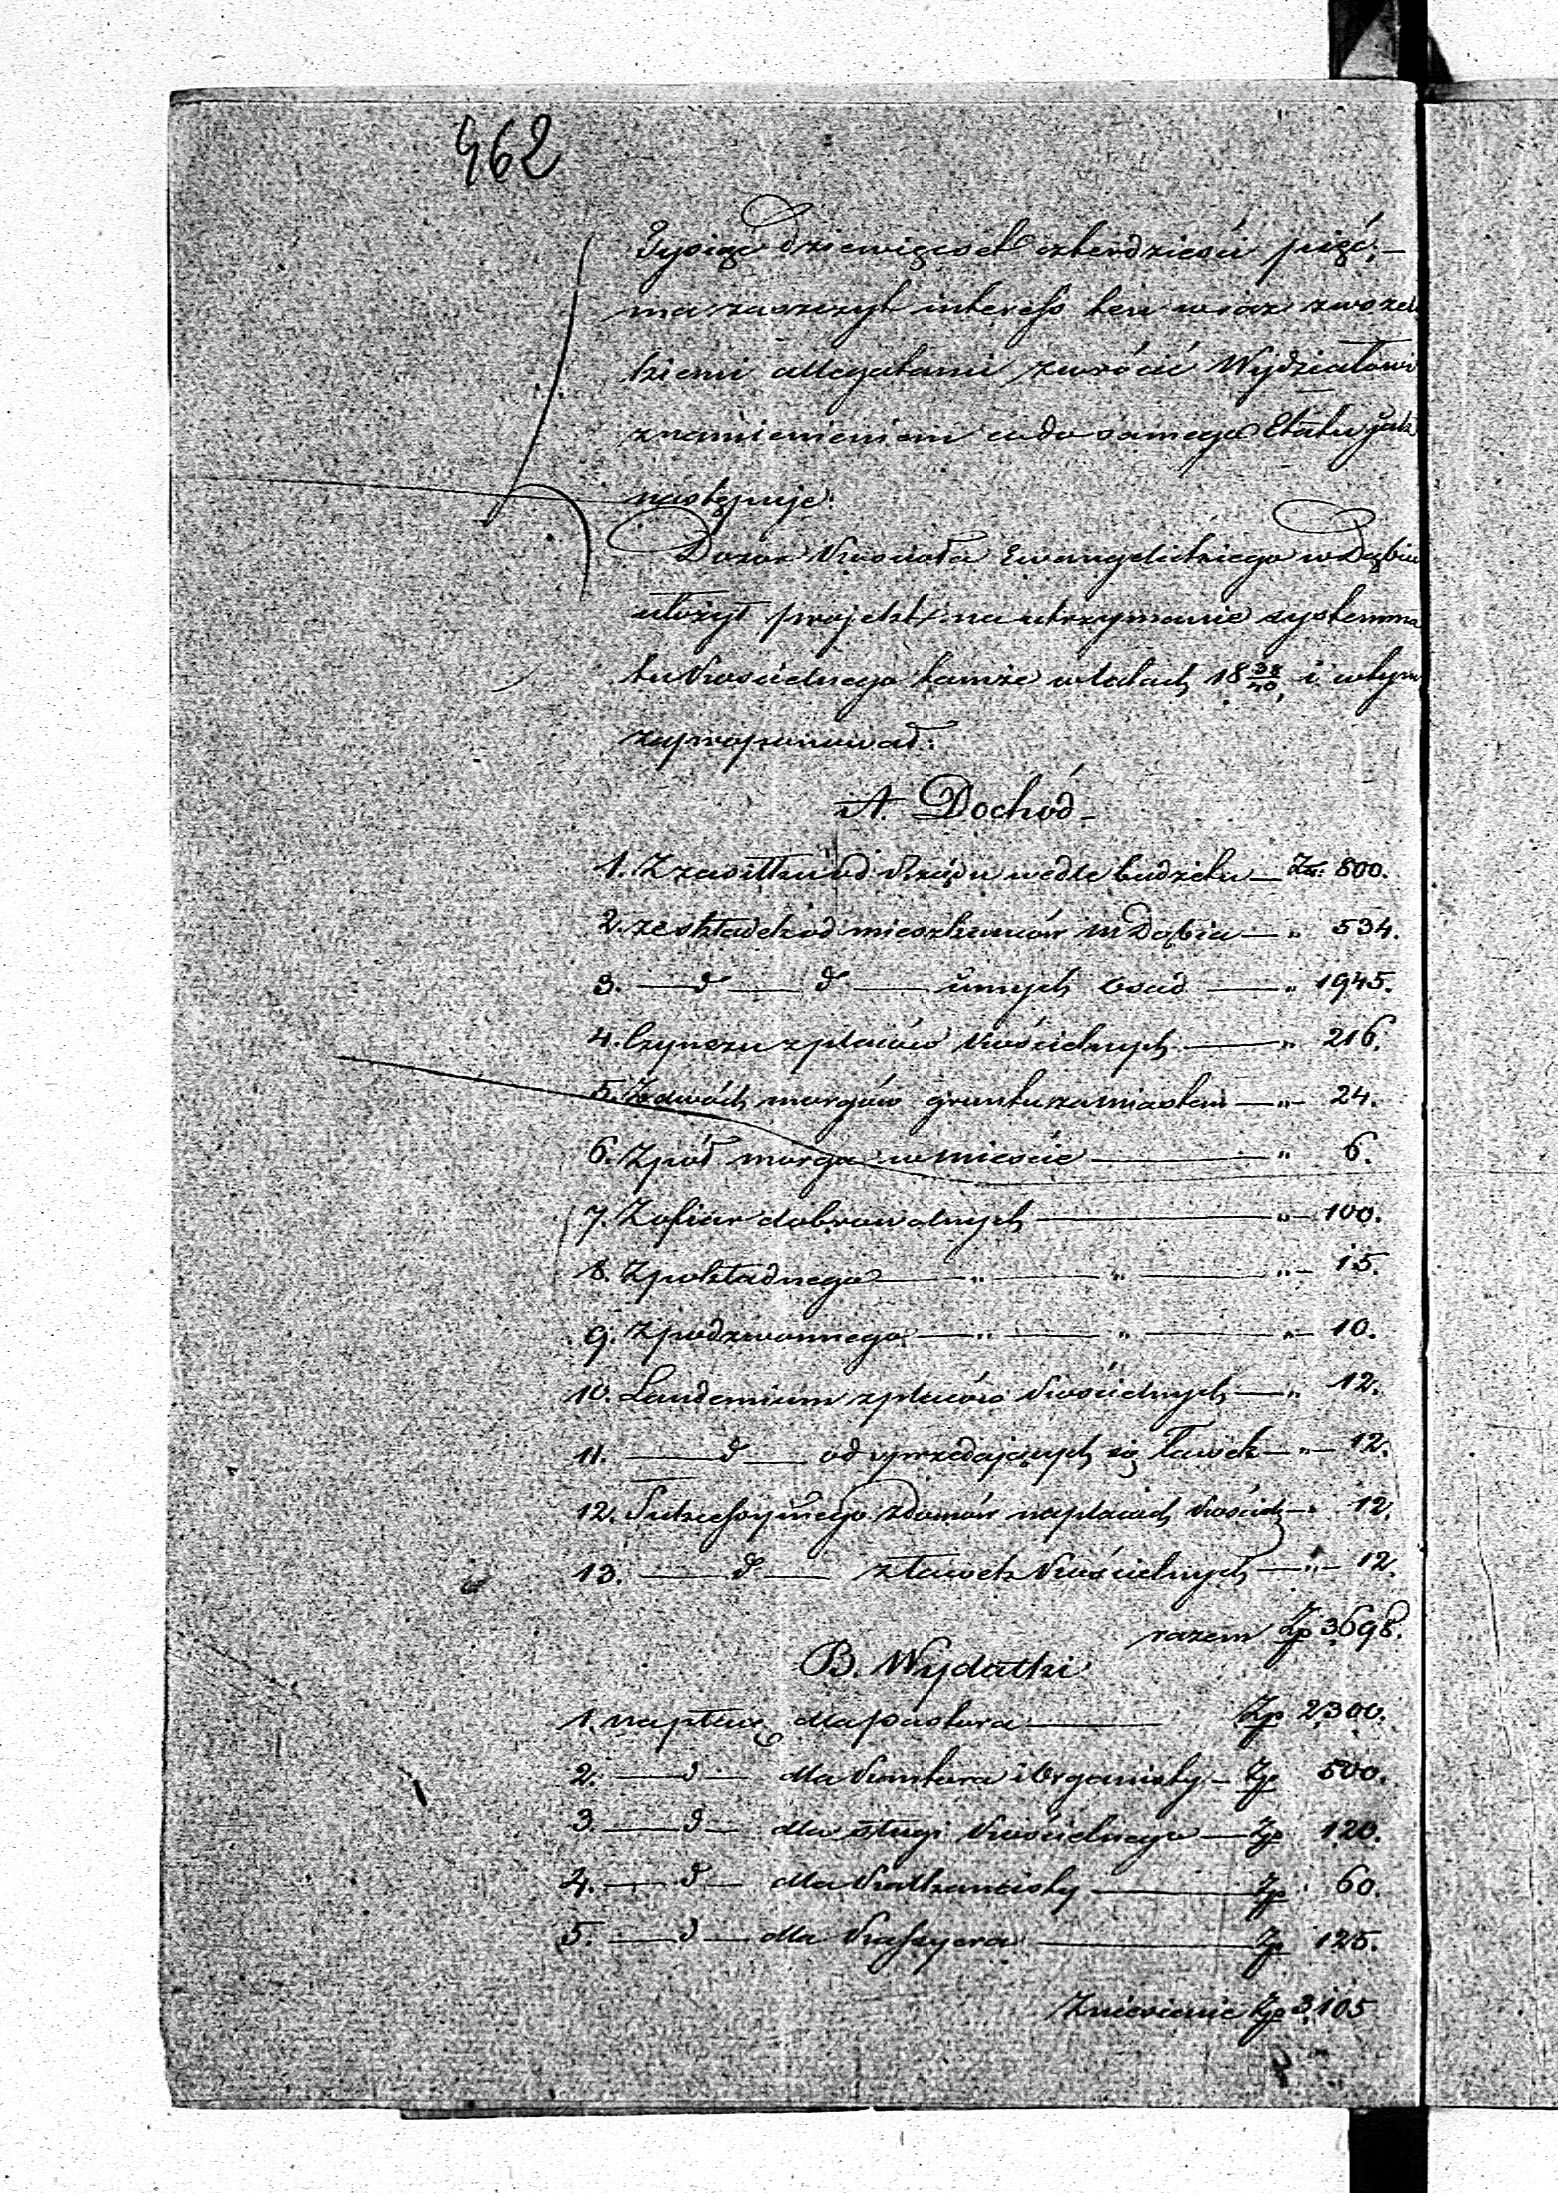 462
Tysiąc dziewięcset czterdzieści pięć, —
ma zaszczyt interess ten wraz z wszel
kiemi allegatami zwrócić Wydziałowi
z namienieniem co do samego Etatu jak
następuje:
Dozór Kościoła Ewangelickiego w Dąbiu
ułożył projekt na utrzymanie systemma
tu Kościelnego tamże w latach 18 38/40, i w tym
zaproponował:
A. Dochód —
1. Z zasiłku od Rządu wedle budżetu — Zł: 800.
2. ze składek od mieszkańców m Dąbia — " 534.
3. — d — d — innych osad — " 1945.
4. Czynszu z placów Kościelnych — " 216.
5. Z dwóch morgów gruntu za miastem — " — 24.
6. Z pół morga w mieście — " 6.
7. Z ofiar dobrowolnych — " — 100.
8. Z pokładnego — " — " — " — 15.
9. Z podzwonnego — " — " — " — 10.
10. Laudemium z placów Kościelnych — " 12.
11. — d — od sprzedających się ławek — " — 12.
12. Sukcessyjnego z domów na placach Kościel — " 12.
13. — d — z ławek Kościelnych — " — 12.
razem Zp 3698.
B. Wydatki
1. na płacę dla pastora — Zp 2300.
2. — d — dla Kantora i Organisty — Zp 500.
3 — d — dla sługi Kościelnego — Zp 120.
4. — d — dla Kalkancisty — Zp 60.
5. — d — dla Kassyera — Zp 125.
Zniesienie Zp 3,105